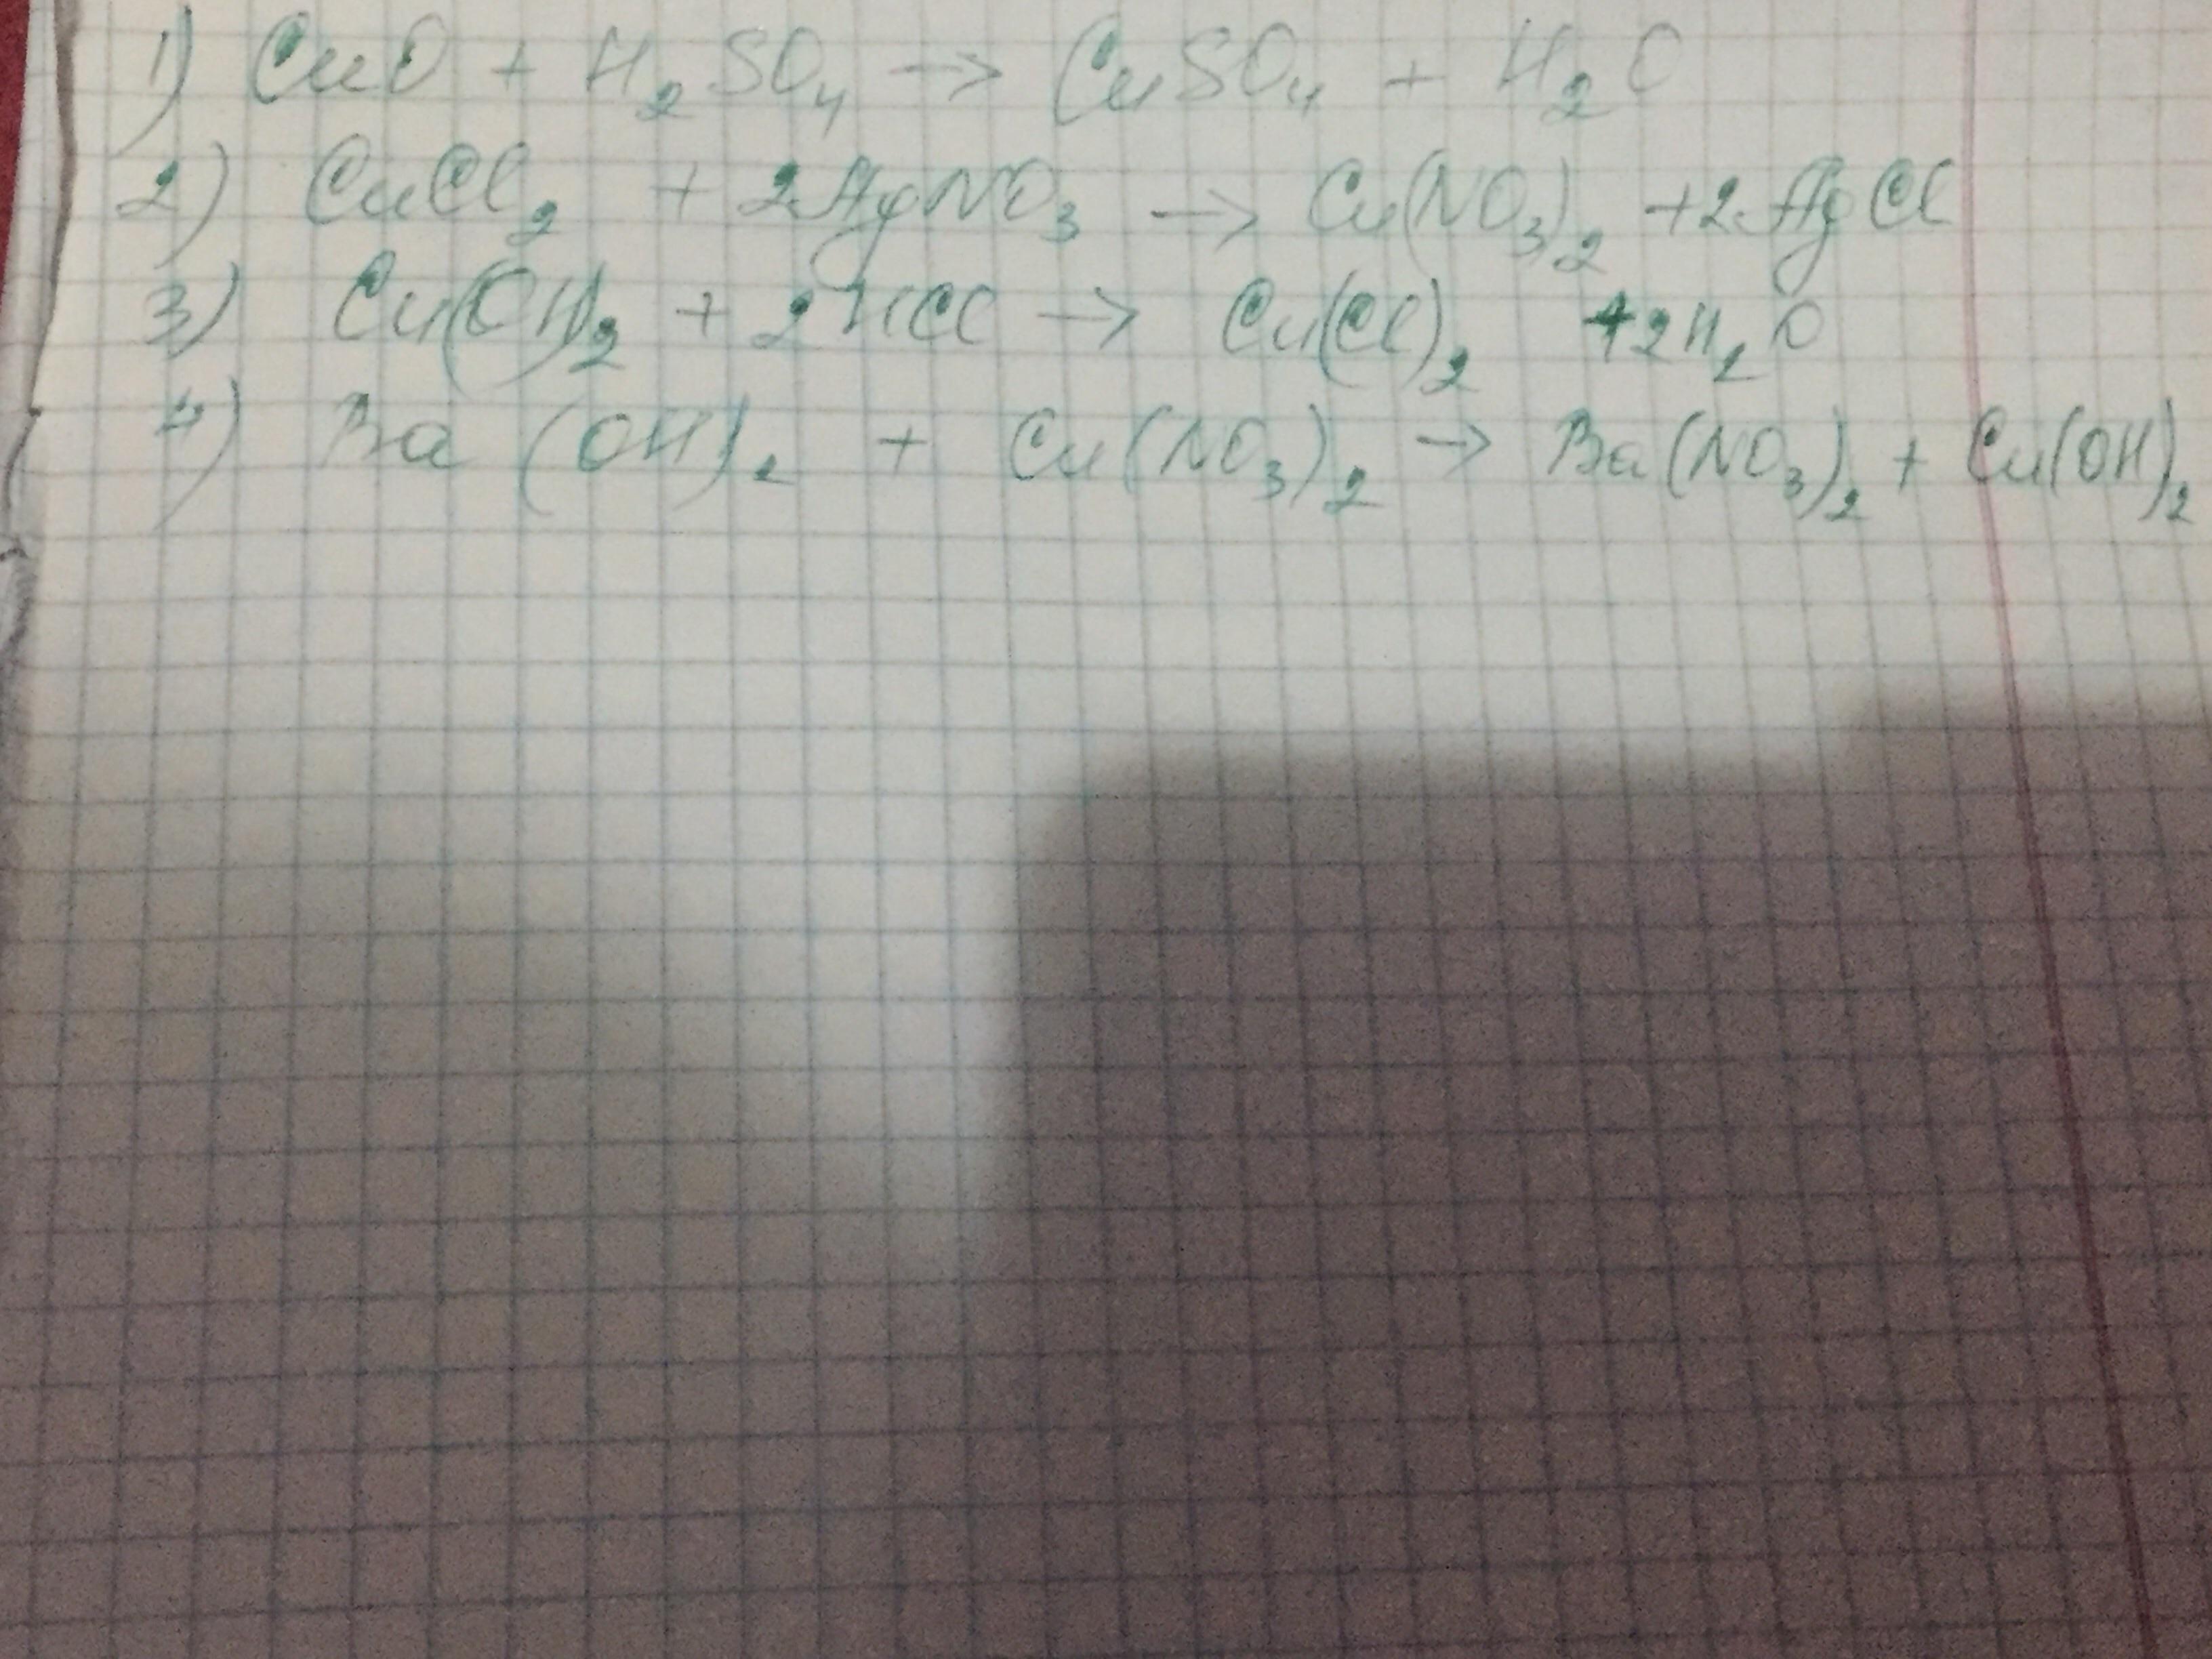 1) CuO + H₂SO₄ → CuSO₄ + H₂O
2) CuCl₂ + 2AgNO₃ → Cu(NO₃)₂ + 2AgCl
3) Cu(OH)₂ + 2HCl → Cu(Cl)₂ + 2H₂O
4) Ba(OH)₂ + Cu(NO₃)₂ → Ba(NO₃)₂ + Cu(OH)₂